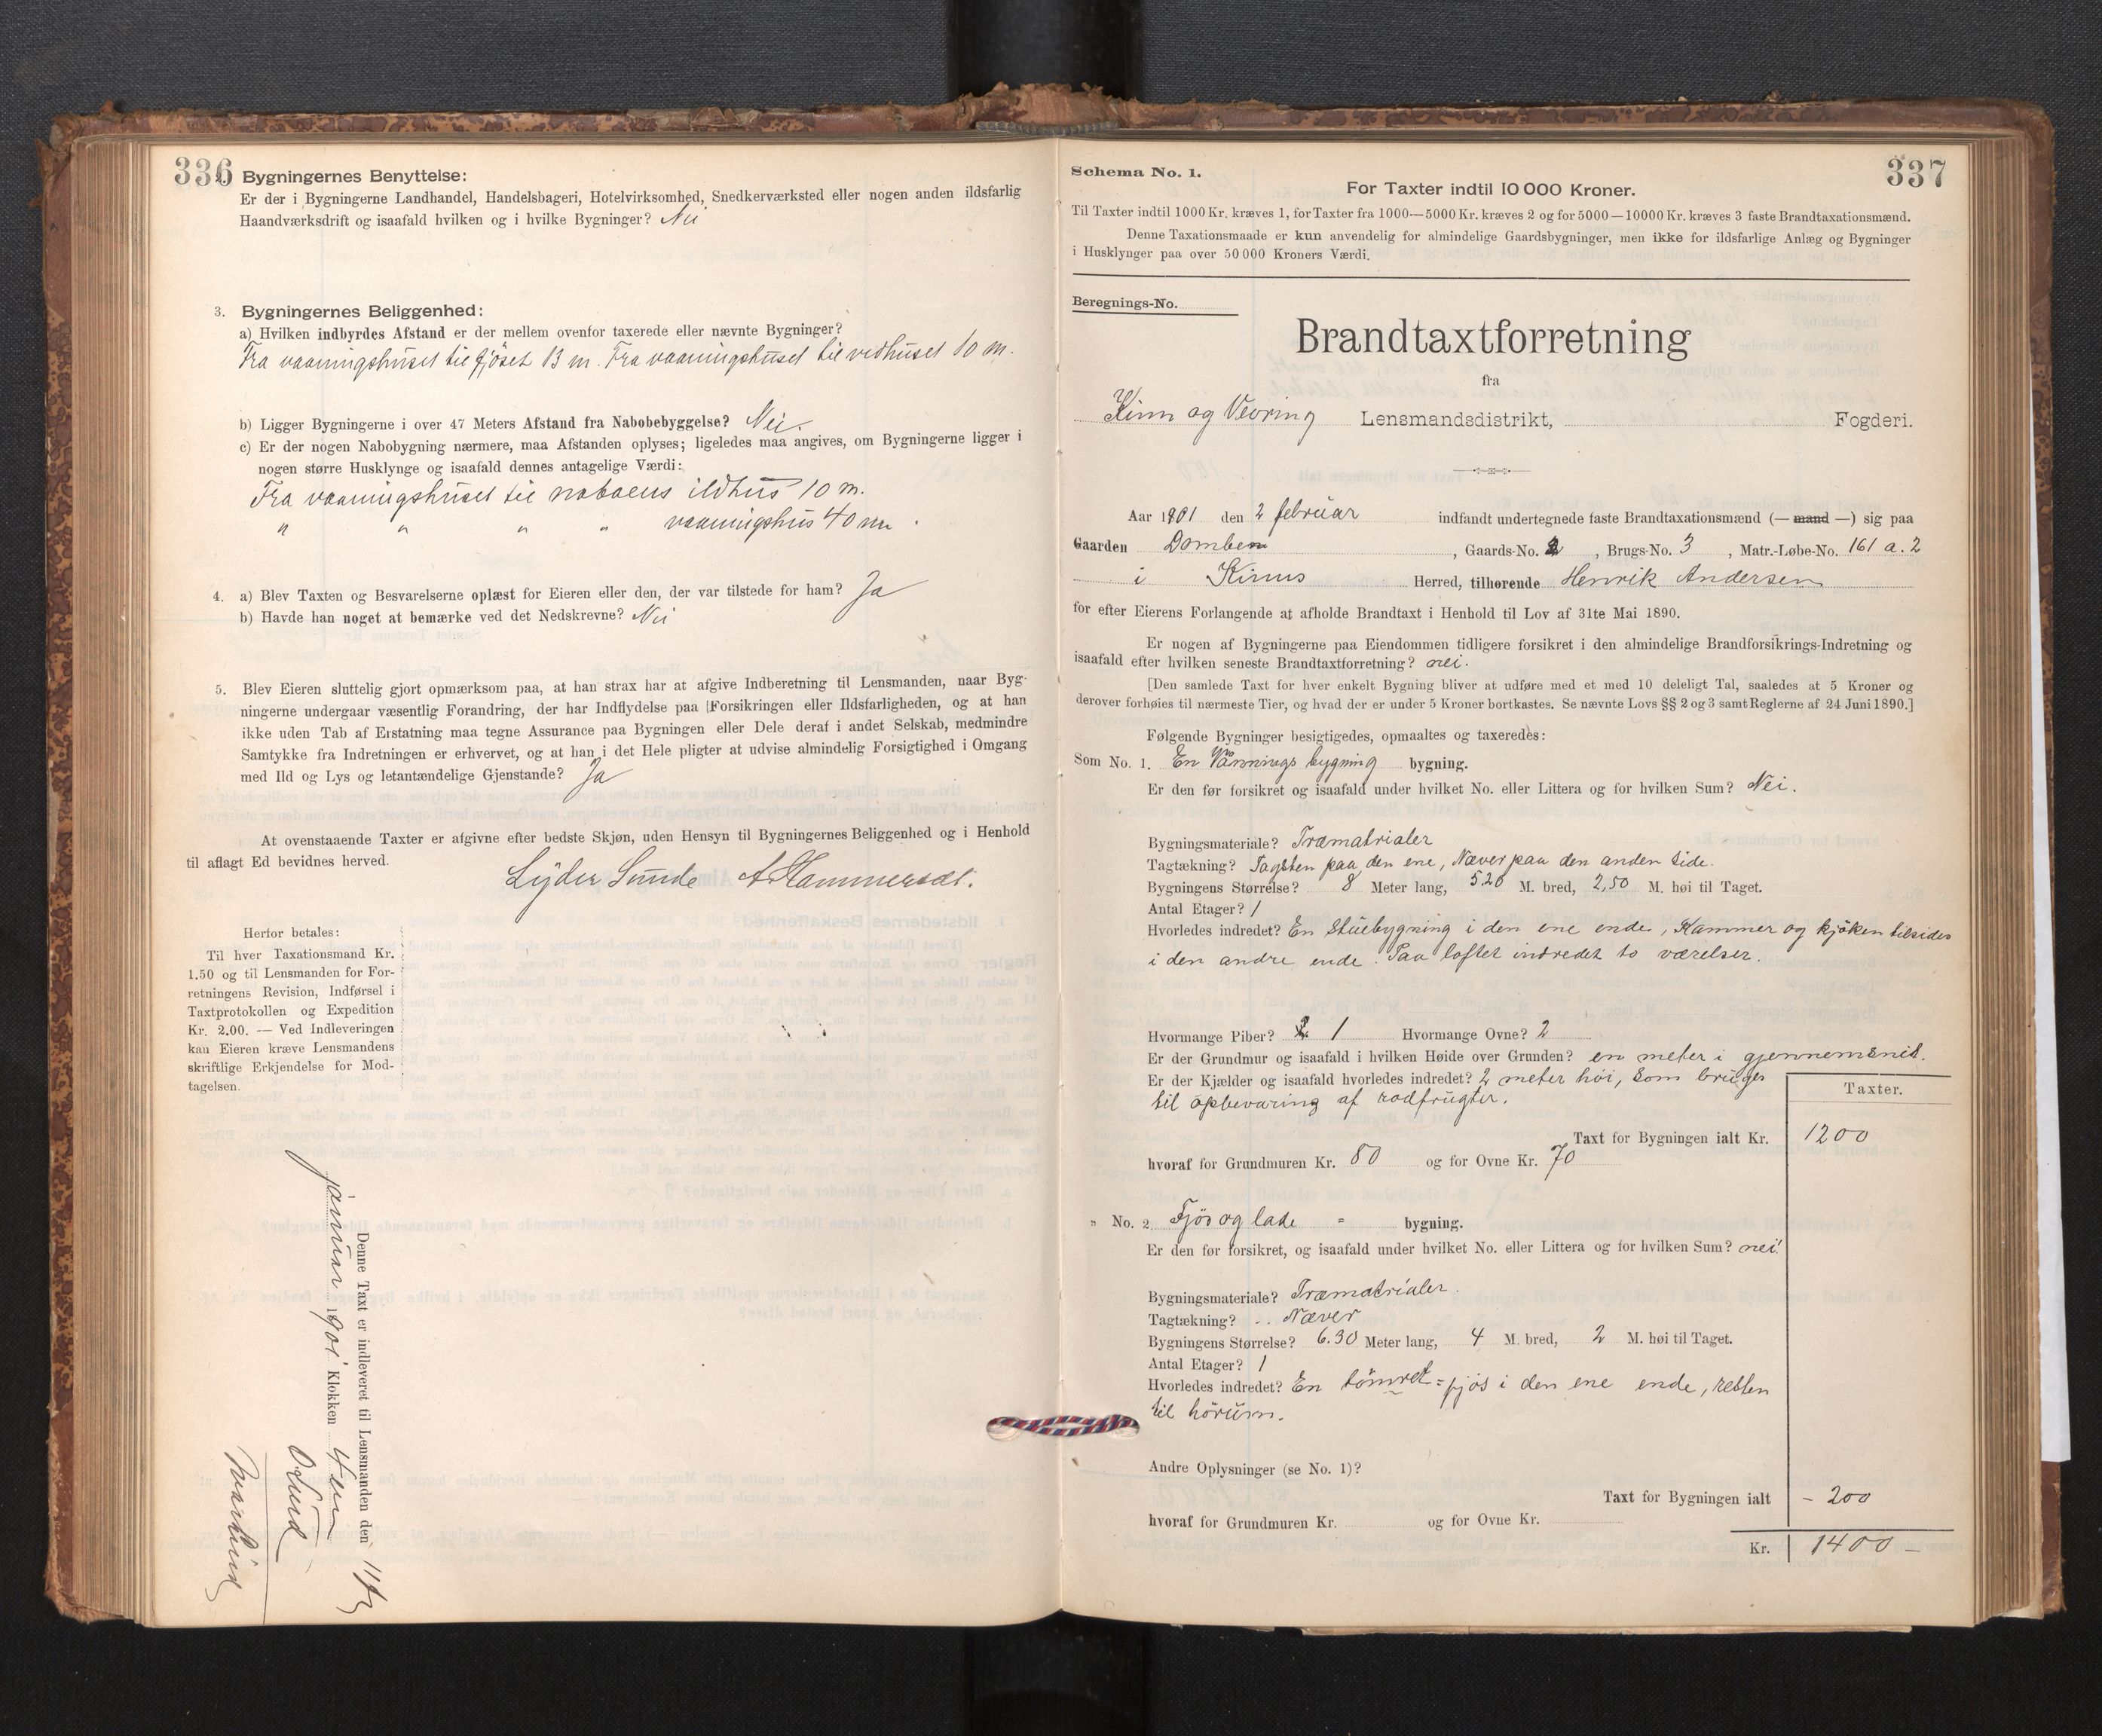 336
Bygningernes Benyttelse:
Er der i Bygningerne Landhandel, Handelsbageri, Hotelvirksomhed, Snedkerværksted eller nogen anden ildsfarlig
Haandværksdrift og isaafald hvilken og i hvilke Bygninger? Nei
3. Bygningernes Beliggenhed:
a) Hvilken indbyrdes Afstand er der mellem ovenfor taxerede eller nævnte Bygninger?
Fra vaaningshuset til fjöset 13 m. Fra vaaningshuset til vedhuset 10 m.
b) Ligger Bygningerne i over 47 Meters Afstand fra Nabobebyggelse? Nei.
c) Er der nogen Nabobygning nærmere, maa Afstanden oplyses; ligeledes maa angives, om Bygningerne ligger i
nogen større Husklynge og isaafald dennes antagelige Værdi:
Fra vaaningshuset til naboens ildhus 10 m.
" " " " vaaningshus 40 m.
4. a) Blev Taxten og Besvarelserne oplæst for Eieren eller den, der var tilstede for ham? Ja
b) Havde han noget at bemærke ved det Nedskrevne? Nei
5. Blev Eieren sluttelig gjort opmærksom paa, at han strax har at afgive Indberetning til Lensmanden, naar Byg-
ningerne undergaar væsentlig Forandring, der har Indflydelse paa Forsikringen eller Ildsfarligheden, og at han
ikke uden Tab af Erstatning maa tegne Assurance paa Bygningen eller Dele deraf i andet Selskab, medmindre
Samtykke fra Indretningen er erhvervet, og at han i det Hele pligter at udvise almindelig Forsigtighed i Omgang
med Ild og Lys og letantændelige Gjenstande? Ja
At ovenstaaende Taxter er afgivne efter bedste Skjøn, uden Hensyn til Bygningernes Beliggenhed og i Henhold
til aflagt Ed bevidnes herved.
Lÿder Sunde A Hammerset.
Herfor betales:
Til hver Taxationsmand Kr.
1.50 og til Lensmanden for For-
retningens Revision, Indførsel i
Taxtprotokollen og Expedition
Kr. 2.00. — Ved Indleveringen
kan Eieren kræve Lensmandens
skriftlige Erkjendelse for Mod-
tagelsen.
Denne Taxt er indleveret til Lensmanden den 11te
januar 1901 Klokken 4
337
Schema No. 1.
For Taxter indtil 10 000 Kroner.
Til Taxter indtil 1000 Kr. kræves 1, for Taxter fra 1000—5000 Kr. kræves 2 og for 5000—10000 Kr. kræves 3 faste Brandtaxationsmænd.
Denne Taxationsmaade er kun anvendelig for almindelige Gaardsbygninger, men ikke for ildsfarlige Anlæg og Bygninger
i Husklynger paa over 50 000 Kroners Værdi.
Beregnings-No.
Brandtaxtforretning
fra
Kinn og Vevring Lensmandsdistrikt, Fogderi.
Aar 1901 den 2 februar indfandt undertegnede faste Brandtaxationsmænd (— mand —) sig paa
Gaarden Domben , Gaards-No. 2 , Brugs-No. 3 , Matr.-Løbe-No. 161 a. 2
i Kinns Herred, tilhørende Henrik Andersen
for efter Eierens Forlangende at afholde Brandtaxt i Henhold til Lov af 31te Mai 1890.
Er nogen af Bygningerne paa Eiendommen tidligere forsikret i den almindelige Brandforsikrings-Indretning og
isaafald efter hvilken seneste Brandtaxtforretning? nei.
[Den samlede Taxt for hver enkelt Bygning bliver at udføre med et med 10 deleligt Tal, saaledes at 5 Kroner og
derover forhøies til nærmeste Tier, og hvad der er under 5 Kroner bortkastes. Se nævnte Lovs §§ 2 og 3 samt Reglerne af 24 Juni 1890.]
Følgende Bygninger besigtigedes, opmaaltes og taxeredes:
Som No. 1. En Vånnings bygning bygning.
Er den før forsikret og isaafald under hvilket No. eller Littera og for hvilken Sum? Nei.
Bygningsmateriale? Træmatrialer
Tagtækning? Tagsten paa den ene, Næver paa den anden side.
Bygningens Størrelse? 8 Meter lang, 5.20 M. bred, 2,50 M. høi til Taget.
Antal Etager? 1
Hvorledes indredet? En Stuebygning i den ene ende, Kammer og kjöken tilsides
i den andre ende. Paa loftet indredet to værelser.
Hvormange Piber? 1 Hvormange Ovne? 2
Er der Grundmur og isaafald i hvilken Høide over Grunden? en meter i gjennemsnit.
Er der Kjælder og isaafald hvorledes indredet? 2 meter höi, som bruges
til opbevaring af rodfrugter.
Taxter.
Taxt for Bygningen ialt Kr. 1200
hvoraf for Grundmuren Kr. 80 og for Ovne Kr. 70
" No. 2. Fjös og lade = bygning.
Er den før forsikret, og isaafald under hvilket No. eller Littera og for hvilken Sum? nei
Bygningsmateriale? Træmatrialer.
Tagtækning? Næver
Bygningens Størrelse? 6.30 Meter lang, 4 M. bred, 2 M. høi til Taget.
Antal Etager? 1
Hvorledes indredet? En tömret = fjös i den ene ende, resten
til hörum.
Andre Oplysninger (se No. 1)?
Taxt for Bygningen ialt - 200
hvoraf for Grundmuren Kr. og for Ovne Kr.
Kr. 1400 -